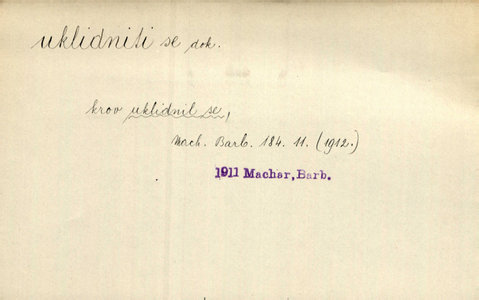 uklidniti se dok.
krov uklidnil se,
Mach. Barb. 184. 11. (1912.)
1911 Machar, Barb.